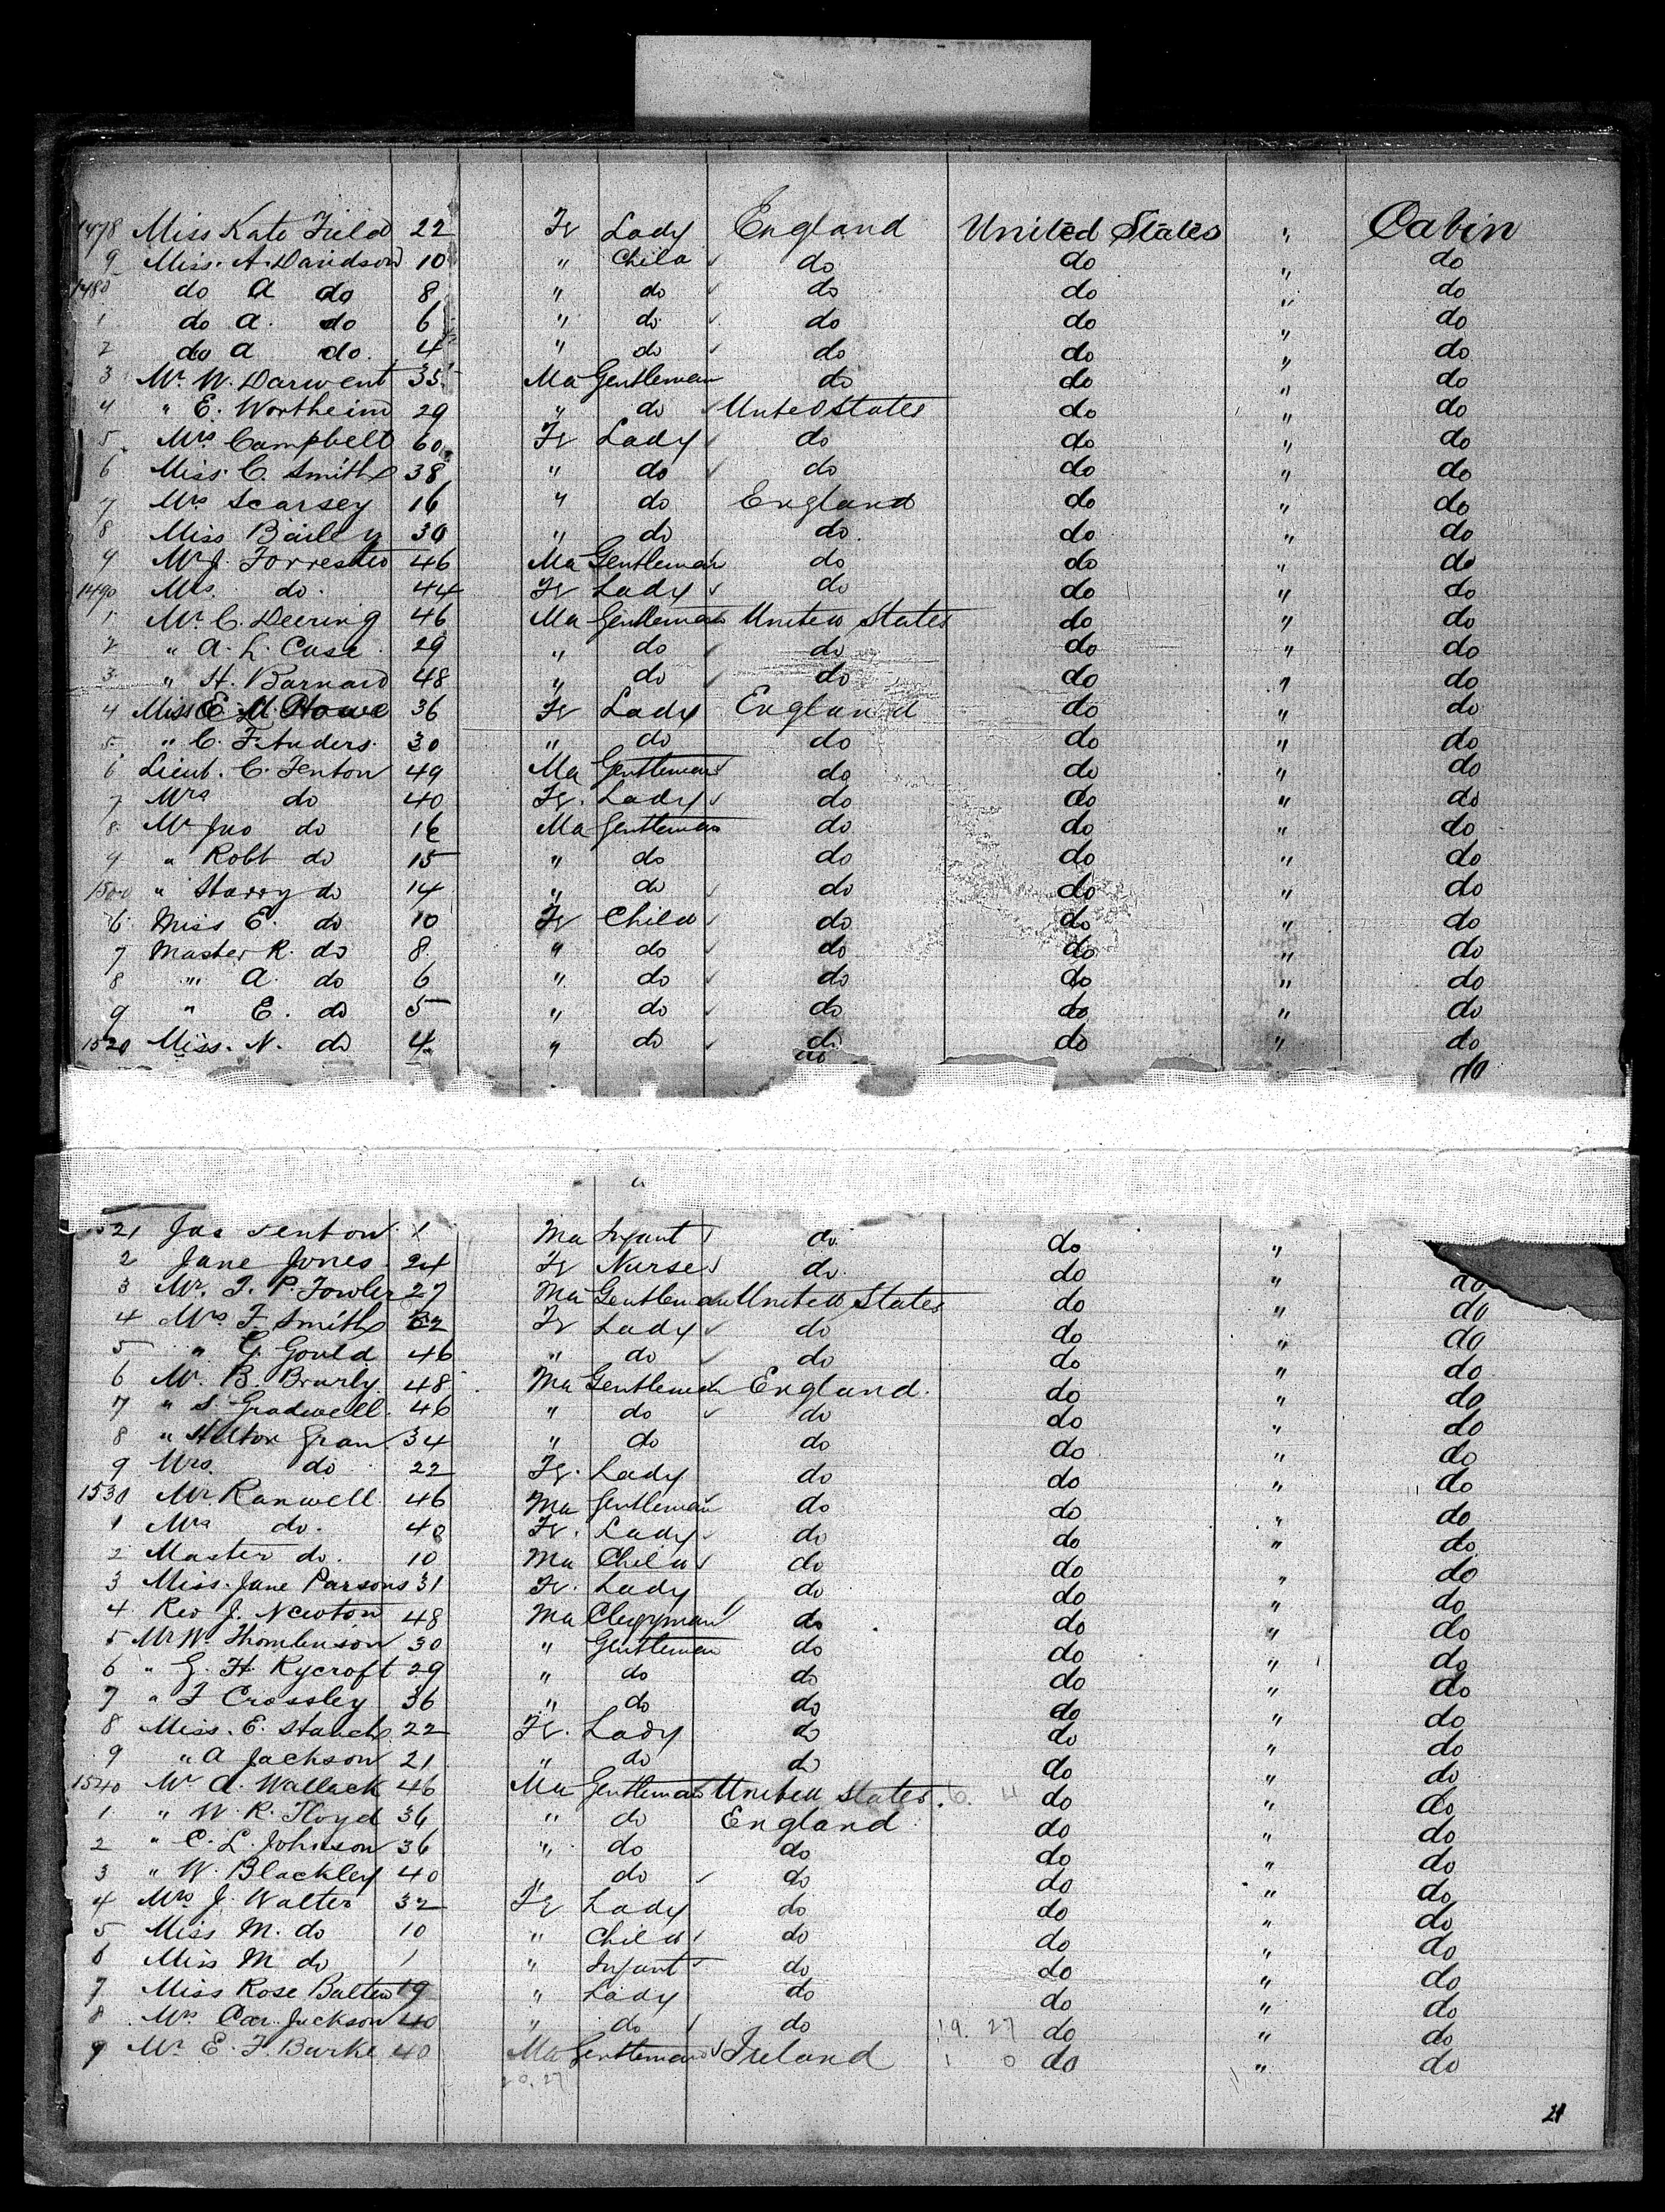 1478 Miss Kate Field 22 Fe Lady England United States " Cabin
9 Miss. A. Davidson 10 " Child do do " do
1480 do A do 8 " do do do " do
1 do A. do 6 " do do do " do
2 do A do 4 " do do do " do
3 Mr. W. Darwent 35 Ma Gentleman do do " do
4 " E. Wortheim 29 " do United States do " do
5 Mrs Campbell 60 Fe Lady do do " do
6 Miss C. Smith 38 " do do do " do
7 Mrs Scarsey 16 " do England do " do
8 Miss Bailey 30 " do do do " do
9 Mr J. Forrester 46 Ma Gentleman do do " do
1490 Mrs. do. 44 Fe Lady do do " do
1 Mr C. Deering 46 Ma Gentleman United States do " do
2 " A. L. Case 29 " do do do " do
3 " H. Barnard 48 " do do do " do
4 Miss E M Howe 36 Fe Lady England do " do
5 " C. F. Anders. 30 " do do do " do
6 Lieut. C. Fenton 49 Ma Gentleman do do " do
7 Mrs do 40 Fe. Lady do do " do
8 Mr Jno do 16 Ma Gentleman do do " do
9 " Robt do 15 " do do do " do
1500 " Harry do 14 " do do do " do
6 Miss E. do 10 Fe Child do do " do
7 Master R. do 8 " do do do " do
8 " A. do 6 " do do do " do
9 " E. do 5 " do do do " do
1520 Miss. N. do 4 " do do do " do
do do
1521 Jas Fenton 1 Ma Infant do do "
2 Jane Jones 24 Fe Nurse do do " do
3 Mr. T. P. Fowler 27 Ma Gentleman United States do " do
4 Mrs F. Smith 62 Fe Lady do do " do
5 " G. Gould 46 " do do do " do
6 Mr. B. Brurly 48 Ma Gentleman England do " do
7 " S. Gradwell 46 " do do do " do
8 " Hilton Gran 34 " do do do " do
9 Mrs. do 22 Fe. Lady do do " do
1530 Mr Ranwell 46 Ma Gentleman do do " do
1 Mrs do. 40 Fe. Lady do do " do
2 Master do. 10 Ma Child do do " do
3 Miss. Jane Parsons 31 Fe. Lady do do " do
4 Rev J. Newton 48 Ma Clergyman do do " do
5 Mr W. Thomlinson 30 " Gentleman do do " do
6 " G. H. Rycroft 29 " do do do " do
7 " T Crossley 36 " do do do " do
8 Miss. E. Stanch 22 Fe. Lady do do " do
9 " A Jackson 21 " do do do " do
1540 Mr A. Wallack 46 Ma Gentleman United States do " do
1 " W. R. Floyd 36 " do England do " do
2 " C. L. Johnson 36 " do do do " do
3 " W. Blackley 40 " do do do " do
4 Mrs J. Walter 32 Fe Lady do do " do
5 Miss M. do 10 " Child do do " do
6 Miss M do 1 " Infant do do " do
7 Miss Rose Balten 19 " Lady do do " do
8 Mrs Car. Jackson 40 " do do 19. 27 do " do
9 Mr E. F. Burke 40 Ma Gentleman Ireland 1 0 do " do
20. 27
21